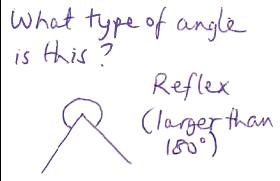 What type of angle
is this?
Reflex
(larger than
180°)